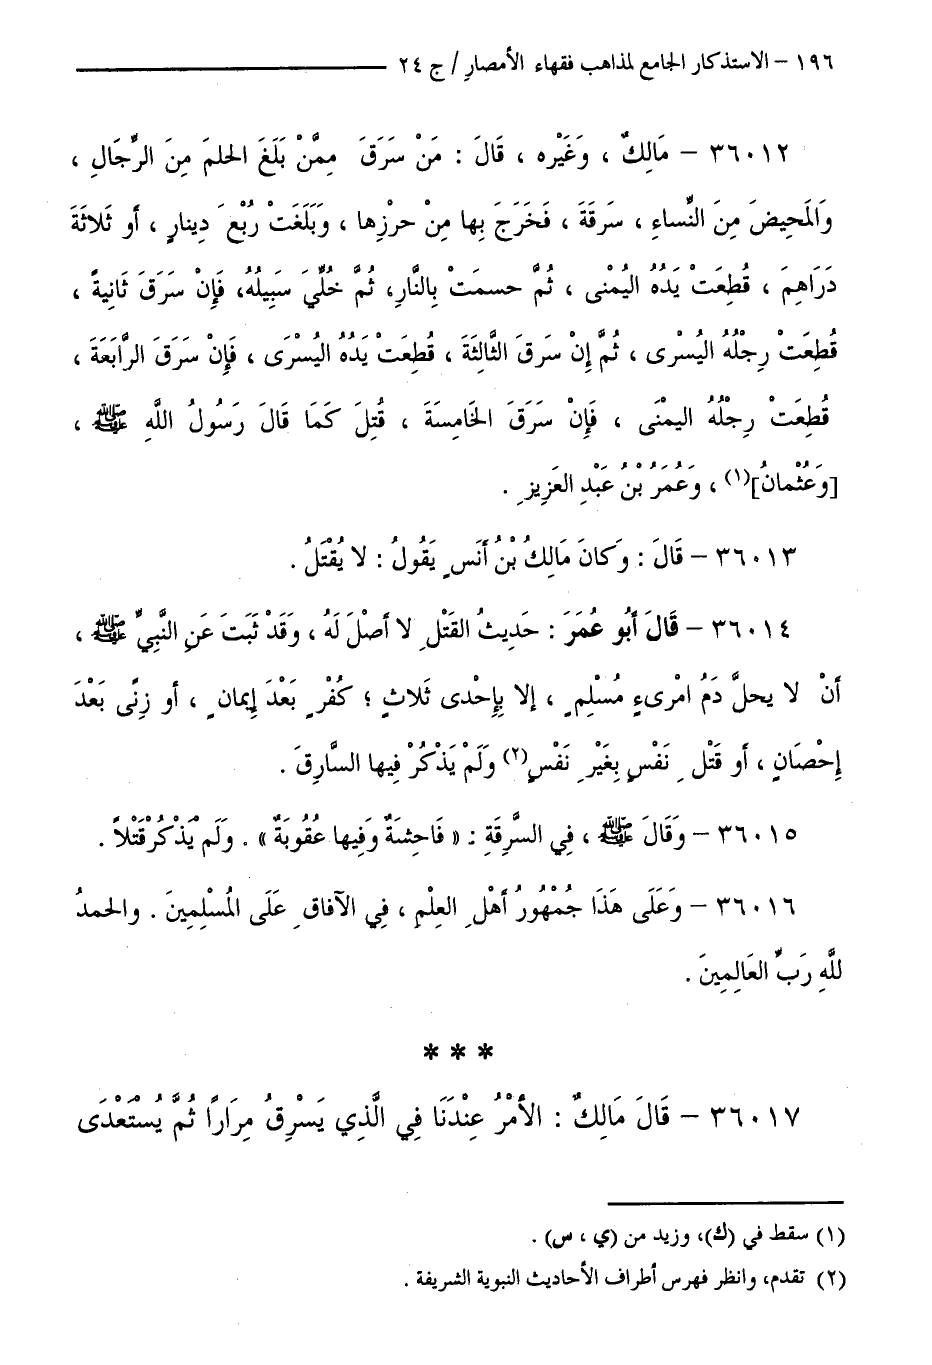 ١٩٦ – الاستذكار الجامع لمذاهب فقهاء الأمصارِ / ج ٢٤
٣٦٠١٢ – مَالِكٌ ، وَغَيْره ، قَالَ : مَنْ سَرَقَ مِمَّنْ بَلَغَ الحلمَ مِنَ الرِّجَالِ ،
وَالمَحِيضَ مِنَ النِّساءِ ، سَرِقَةَ ، فَخَرَجَ بِها مِنْ حرْزِها ، وَبَلَغَتْ رُبْعَ دِينارٍ ، أو ثَلاثَةَ
دَرَاهِمَ ، قُطِعَتْ يَدُهُ اليُمْنى ، ثُمَّ حسمَتْ بِالنَّارِ، ثُمَّ خُلِّيَ سَبِيلُهُ، فَإِنْ سَرَقَ ثَانِيةً ،
قُطِعَتْ رِجْلُهُ اليُسْرى ، ثُمَّ إِنْ سَرقَ الثَّالِثَةَ ، قُطِعَتْ يَدُهُ اليُسْرَى ، فَإِنْ سَرَقَ الرَّابَعَةَ ،
قُطِعَتْ رِجْلُهُ اليمْنَى ، فَإِنْ سَرَقَ الخَامِسَةَ ، قُتِلَ كَمَا قَالَ رَسُولُ اللَّهِ ﷺ ،
[وَعُثْمانُ](١) ، وَعُمَرُ بْنُ عَبْدِ العَزِيزِ .
٣٦٠١٣ – قَالَ : وَكانَ مَالِكُ بْنُ أَنَسٍ يَقُولُ : لا يُقْتَلُ .
٣٦٠١٤ – قَالَ أَبُو عُمَرَ : حَدِيثُ القَتْلِ لا أَصْلَ لَهُ ، وَقَدْ ثَبَتَ عَنِ النَّبِيِّ ﷺ ،
أَنْ لا يحلَّ دَمُ امْرىءٍ مُسْلِمٍ ، إلا بِإِحْدى ثَلاثٍ ؛ كُفْرٍ بَعْدَ إِيمانٍ ، أو زِنًى بَعْدَ
إِحْصَانٍ ، أو قَتْلِ نَفْسٍ بِغَيْرِ نَفْسٍ(٢) وَلَمْ يَذْكُرْ فِيها السَّارِقَ .
٣٦٠١٥ – وَقَالَ ﷺ ، فِي السَّرِقَةِ : « فَاحِشَةٌ وَفِيها عُقُوبَةٌ » . وَلَمْ يَذْكُرْ قَتْلاً .
٣٦٠١٦ – وَعَلَى هَذَا جُمْهُورُ أَهْلِ العِلْمِ ، فِي الآفاقِ عَلَى المُسْلِمِينَ . والحمدُ
للَّهِ رَبِّ العَالِمِينَ .
* * *
٣٦٠١٧ – قَالَ مَالِكٌ : الأَمْرُ عِنْدَنَا فِي الَّذِي يَسْرِقُ مِرَارًا ثُمَّ يُسْتَعْدَى
(١) سقط في (ك)، وزيد من (ي ، س) .
(٢) تقدم، وانظر فهرس أطراف الأحاديث النبوية الشريفة .